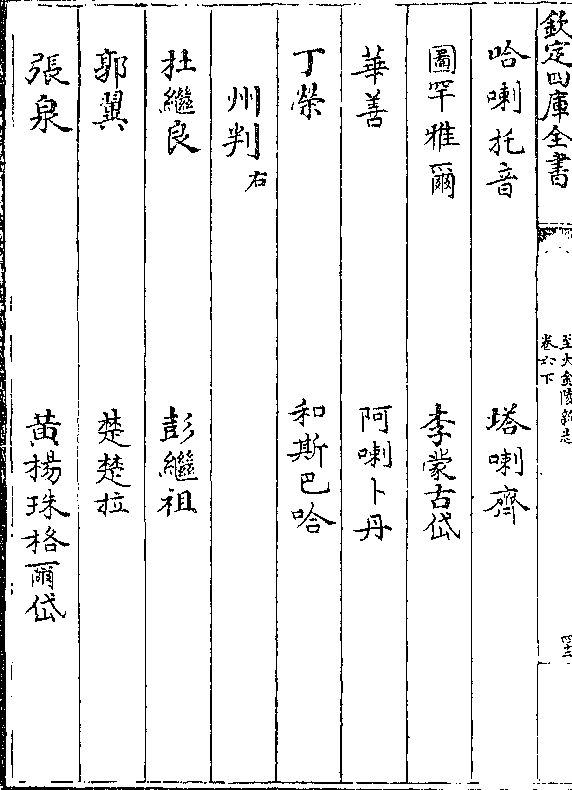 欽定四庫全書
至大金陵新志
卷六下
哈喇托音 塔喇齊
圖罕雅爾 李蒙古岱
華善 阿喇卜丹
丁榮 和斯巴哈
州判右
杜繼良 彭繼祖
郭翼 楚楚拉
張泉 黃楊珠格爾岱